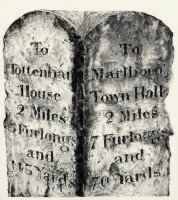 To
Tottenham
House
2 Miles
5 Furlongs
and
Yards
To
Marlboro'
Town Hall
2 Miles
7 Furlongs
and
70 Yards.